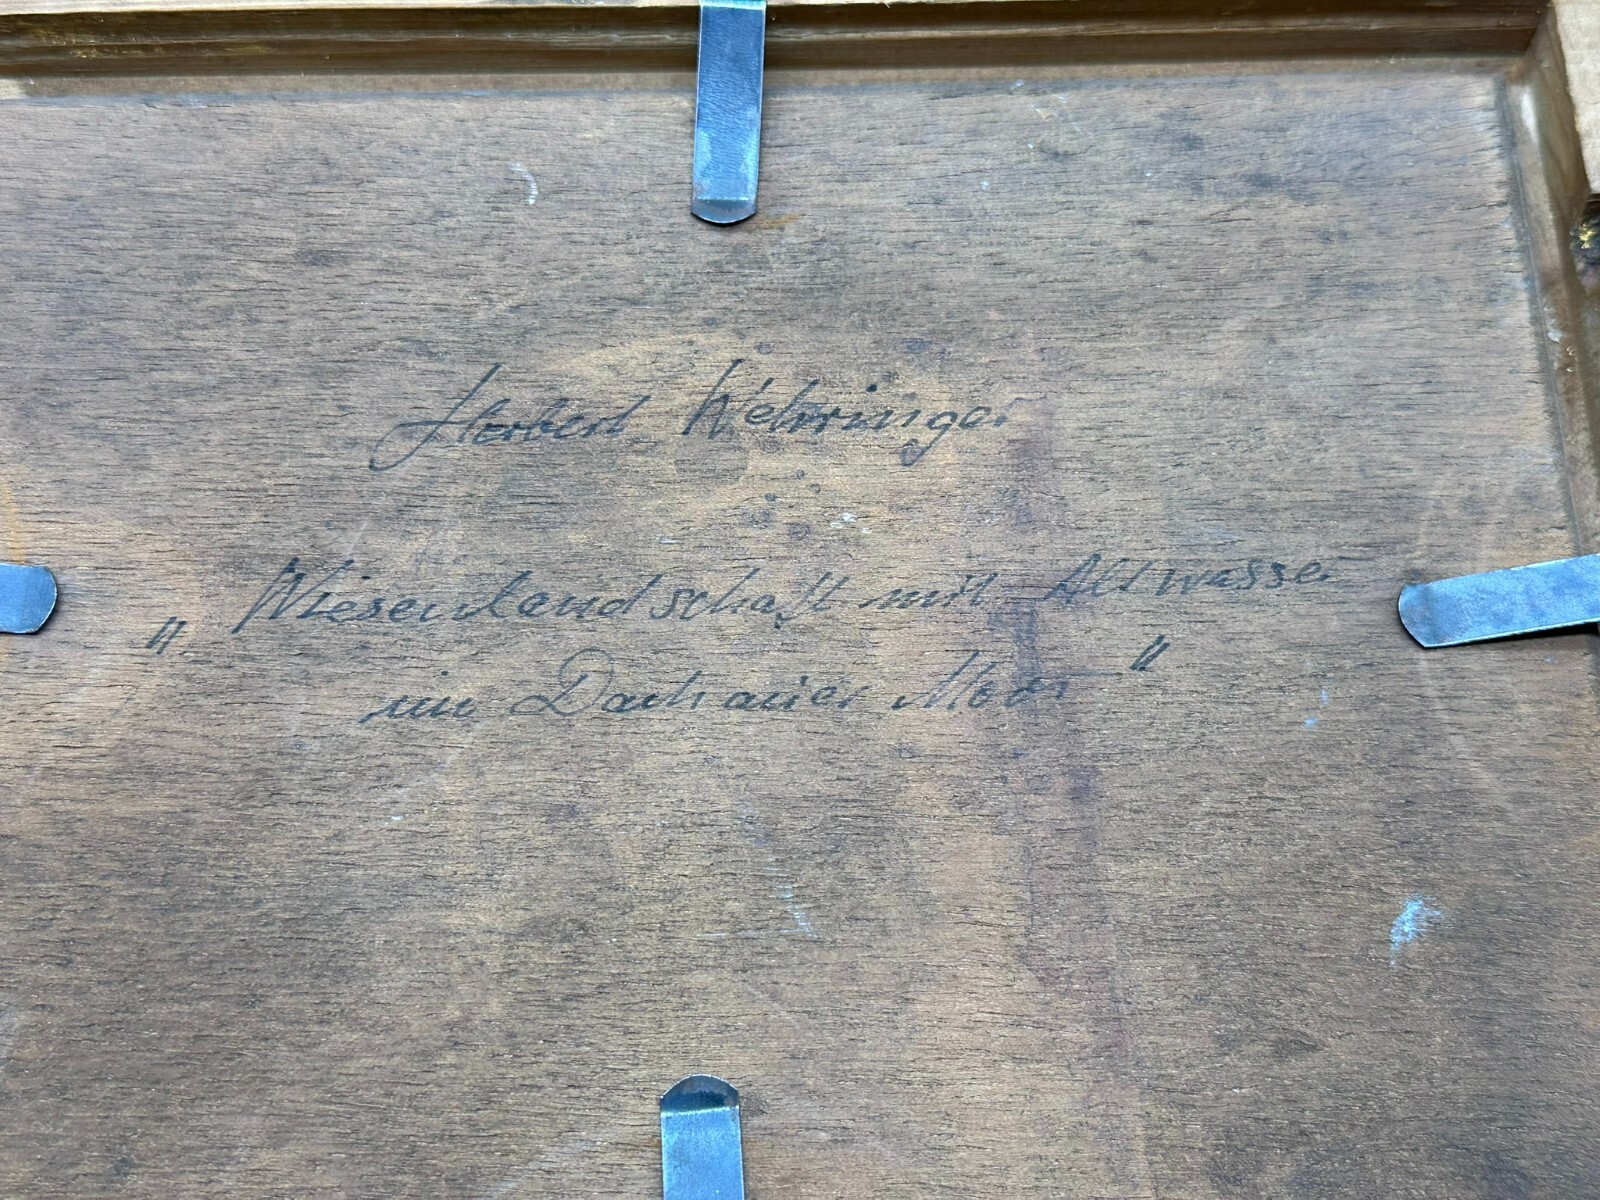 Herbert Wehringer
„ Wiesenlandschaft mit Altwasser
im Dachauer Moor "